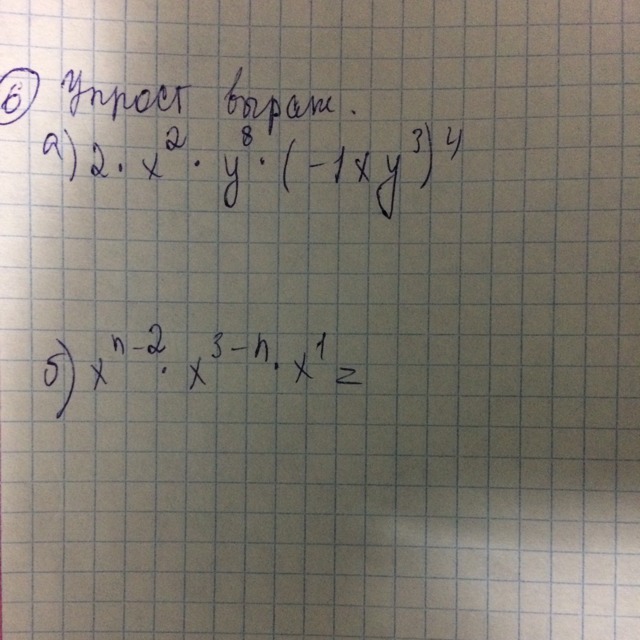 6 Упрост выраж.
а) 2 · x² · y⁸ · (-1xy³)⁴
б) xⁿ⁻² · x³⁻ⁿ · x¹ =